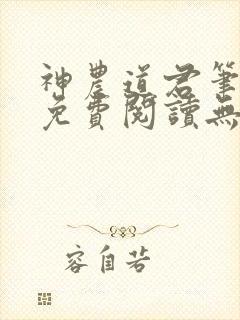 神農道君筆
免費閱讀無
容自若